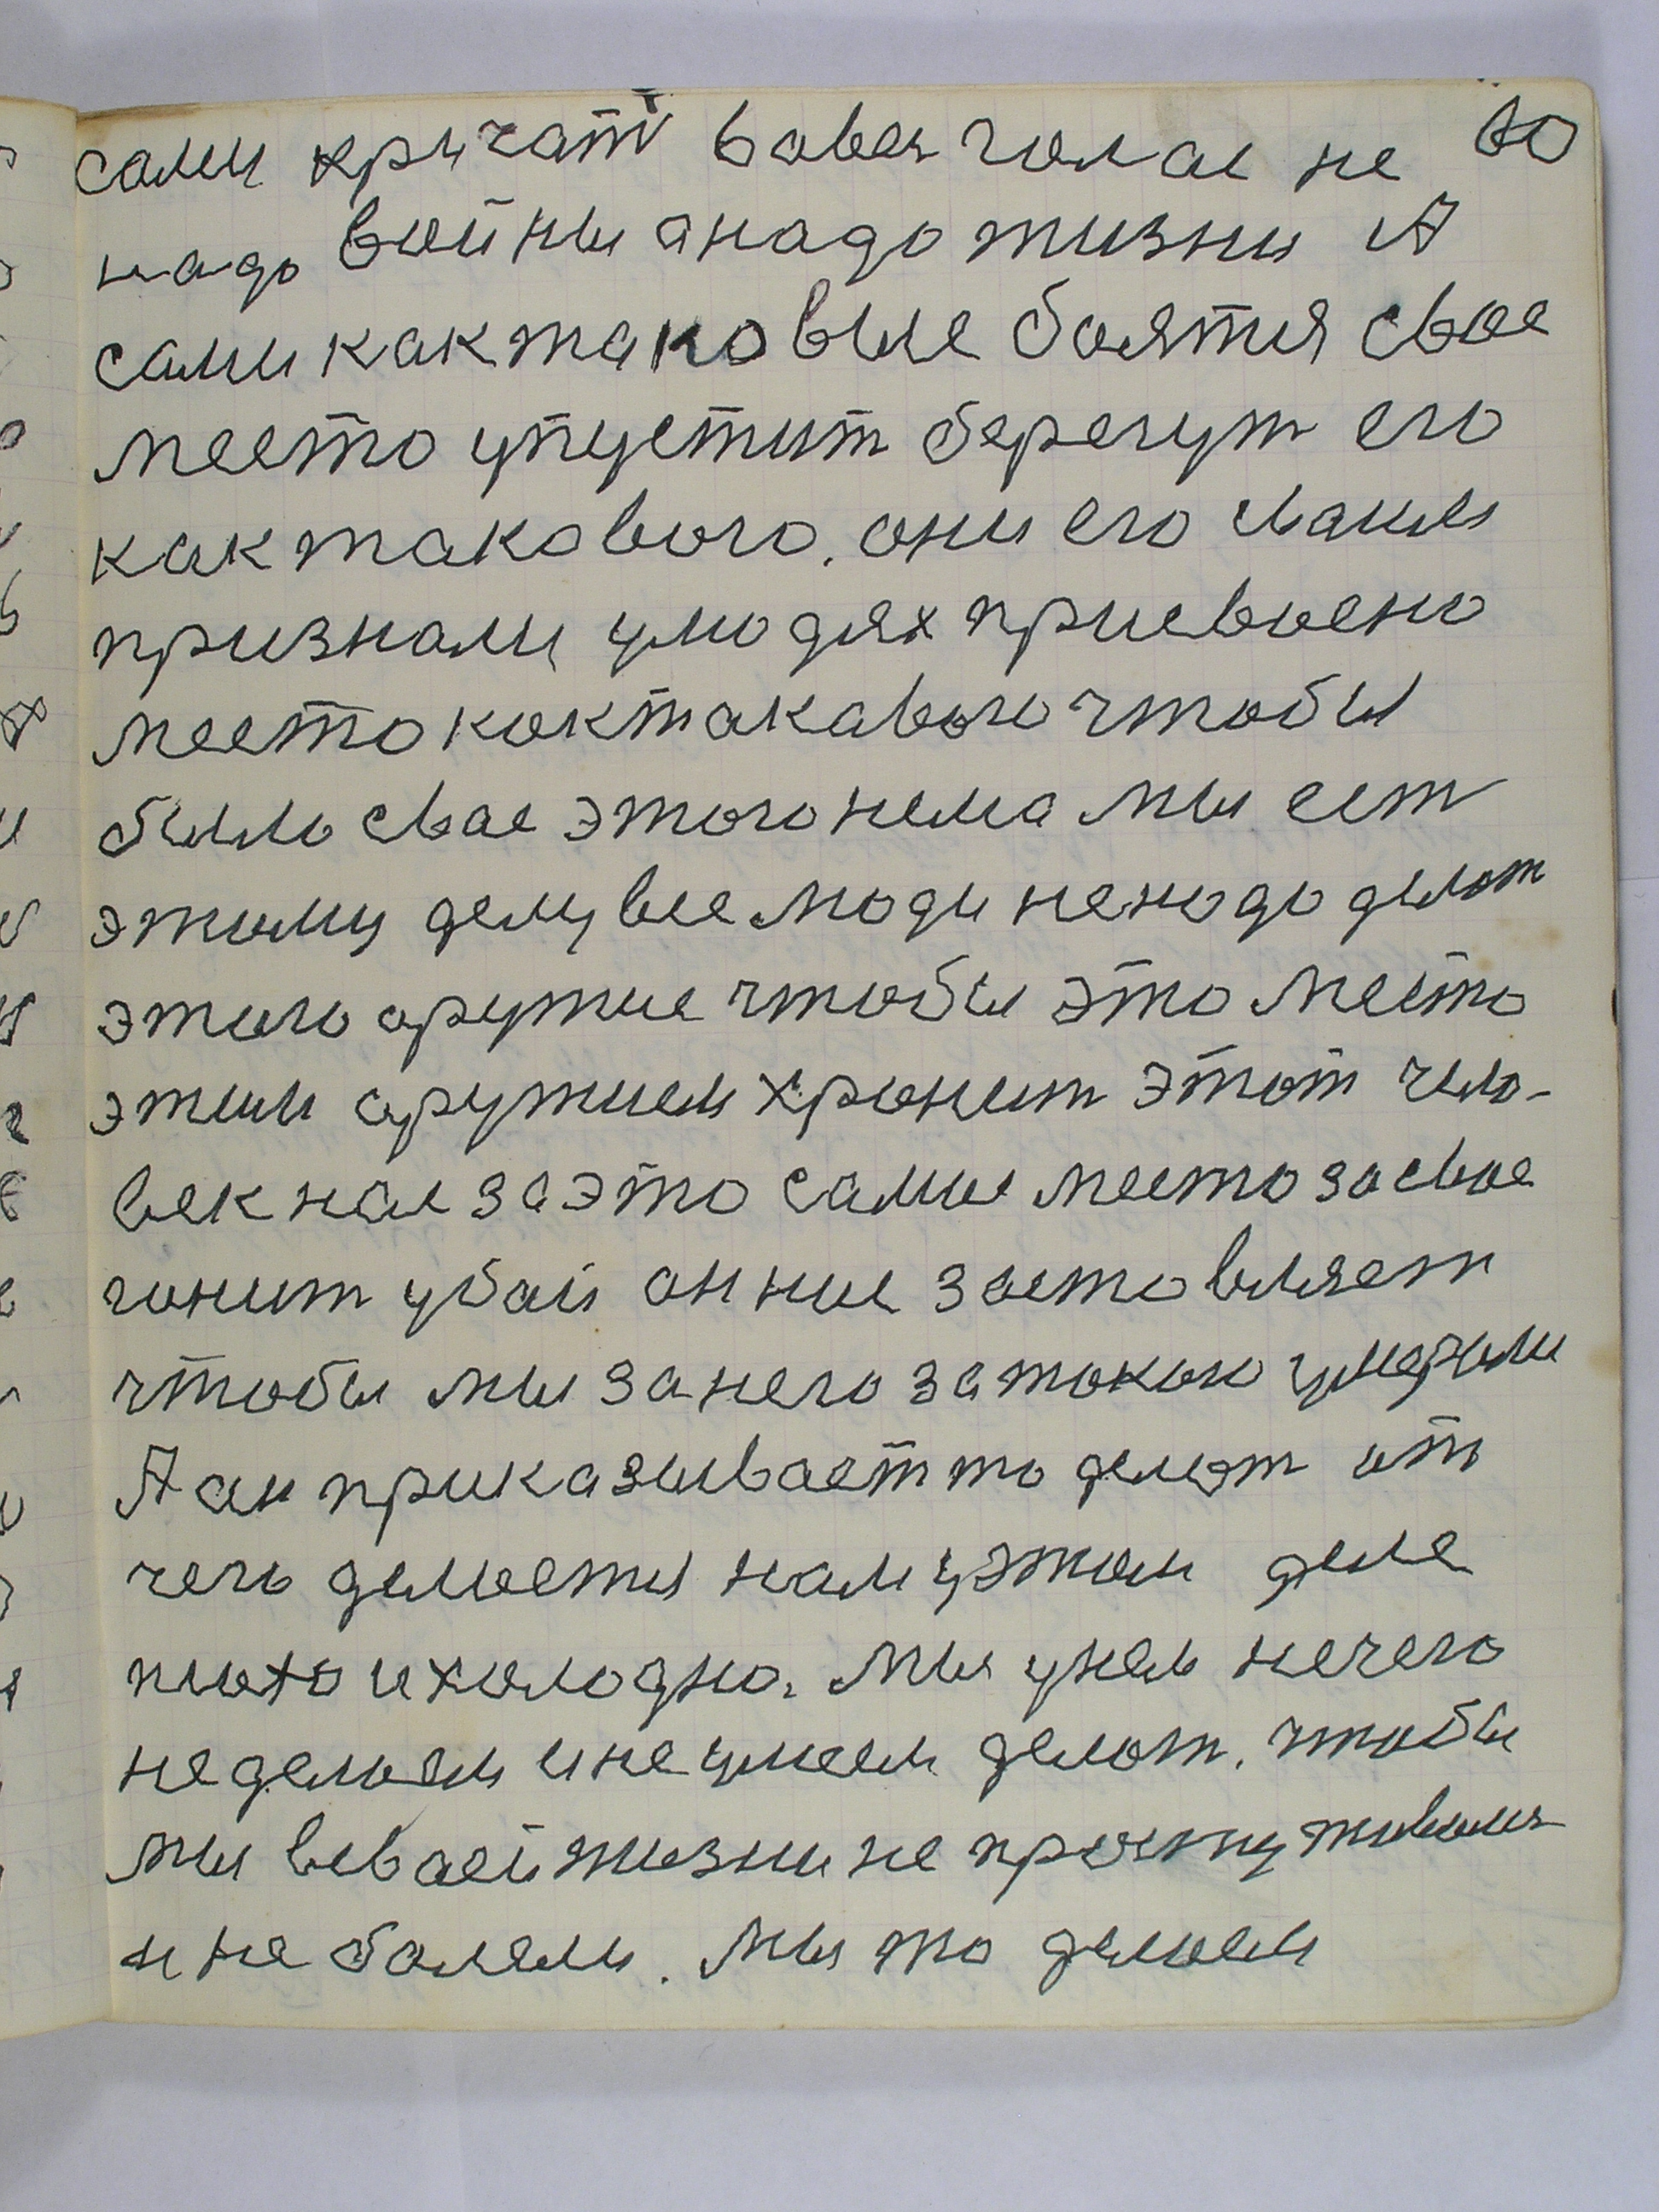 сами кричат вовесь голас не 60
надо войны а надо жизни А
сами как таковые боятся свое
место упустит берегут его
как такового. они его сваим
признали, улюдях присвоено
место кактакавого чтобы
было свае этого нема мы ест
этому делу все люди ненадо делат
этого аружие чтобы это место
этим аружием хранит этот чело-
век нас за это самое место за свое
гонит убой он нас заставляет
чтобы мы за него за такого умерали
А ан приказывает то делат от
чего делается нам уэтом деле
плохо и холодно. Мы унем нечего
не делаем и не умеем делат. чтобы
мы всваей жизни не простуживались
и не болели. Мы то делаем